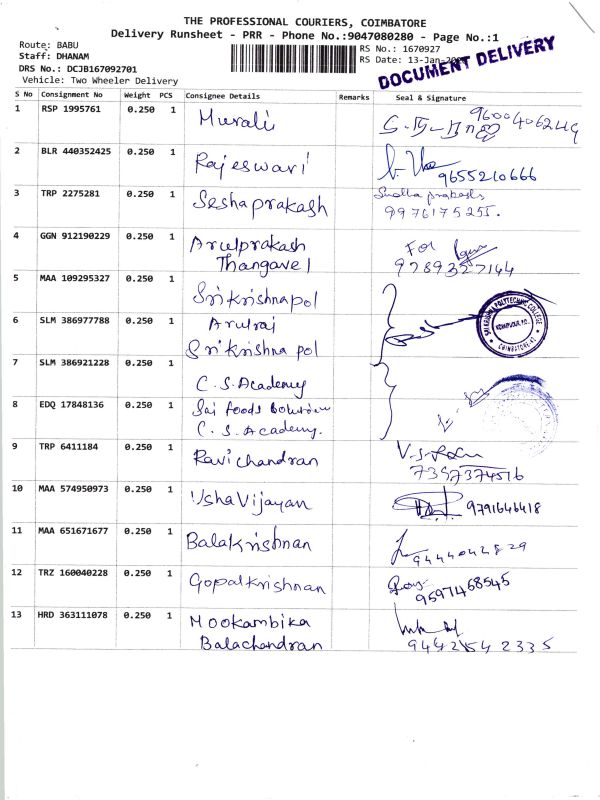 THE PROFESSIONAL COURIERS, COIMBATORE
Delivery Runsheet - PRR - Phone No.:9047080280 - Page No.:1
Route: BABU
Staff: DHANAM
DRS No.: DCJB167092701
Vehicle: Two Wheeler Delivery
RS No.: 1670927
RS Date: 13-Jan-
DOCUMENT DELIVERY
S No Consignment No Weight PCS Consignee Details Remarks Seal & Signature
1 RSP 1995761 0.250 1 Murali
2 BLR 440352425 0.250 1 Rajeswari 9655210666
3 TRP 2275281 0.250 1 Seshaprakash
9976175255.
4 GGN 912190229 0.250 1 Arulprakash For
Thangavel 9789327144
5 MAA 109295327 0.250 1 Srikrishna pol
6 SLM 386977788 0.250 1 Arulraj
Srikrishna pol
SRI KRISHNA POLYTECHNIC COLLEGE
COIMBATORE-42
7 SLM 386921228 0.250 1 C.S.Academy
8 EDQ 17848136 0.250 1 Sai foods
C.S.Academy.
9 TRP 6411184 0.250 1 Ravichandran
7397374516
10 MAA 574950973 0.250 1 Usha Vijayan 9791646418
11 MAA 651671677 0.250 1 Balakrishnan 9444042829
12 TRZ 160040228 0.250 1 Gopalkrishnan
9597468545
13 HRD 363111078 0.250 1 Mookambika
Balachandran 9442542335